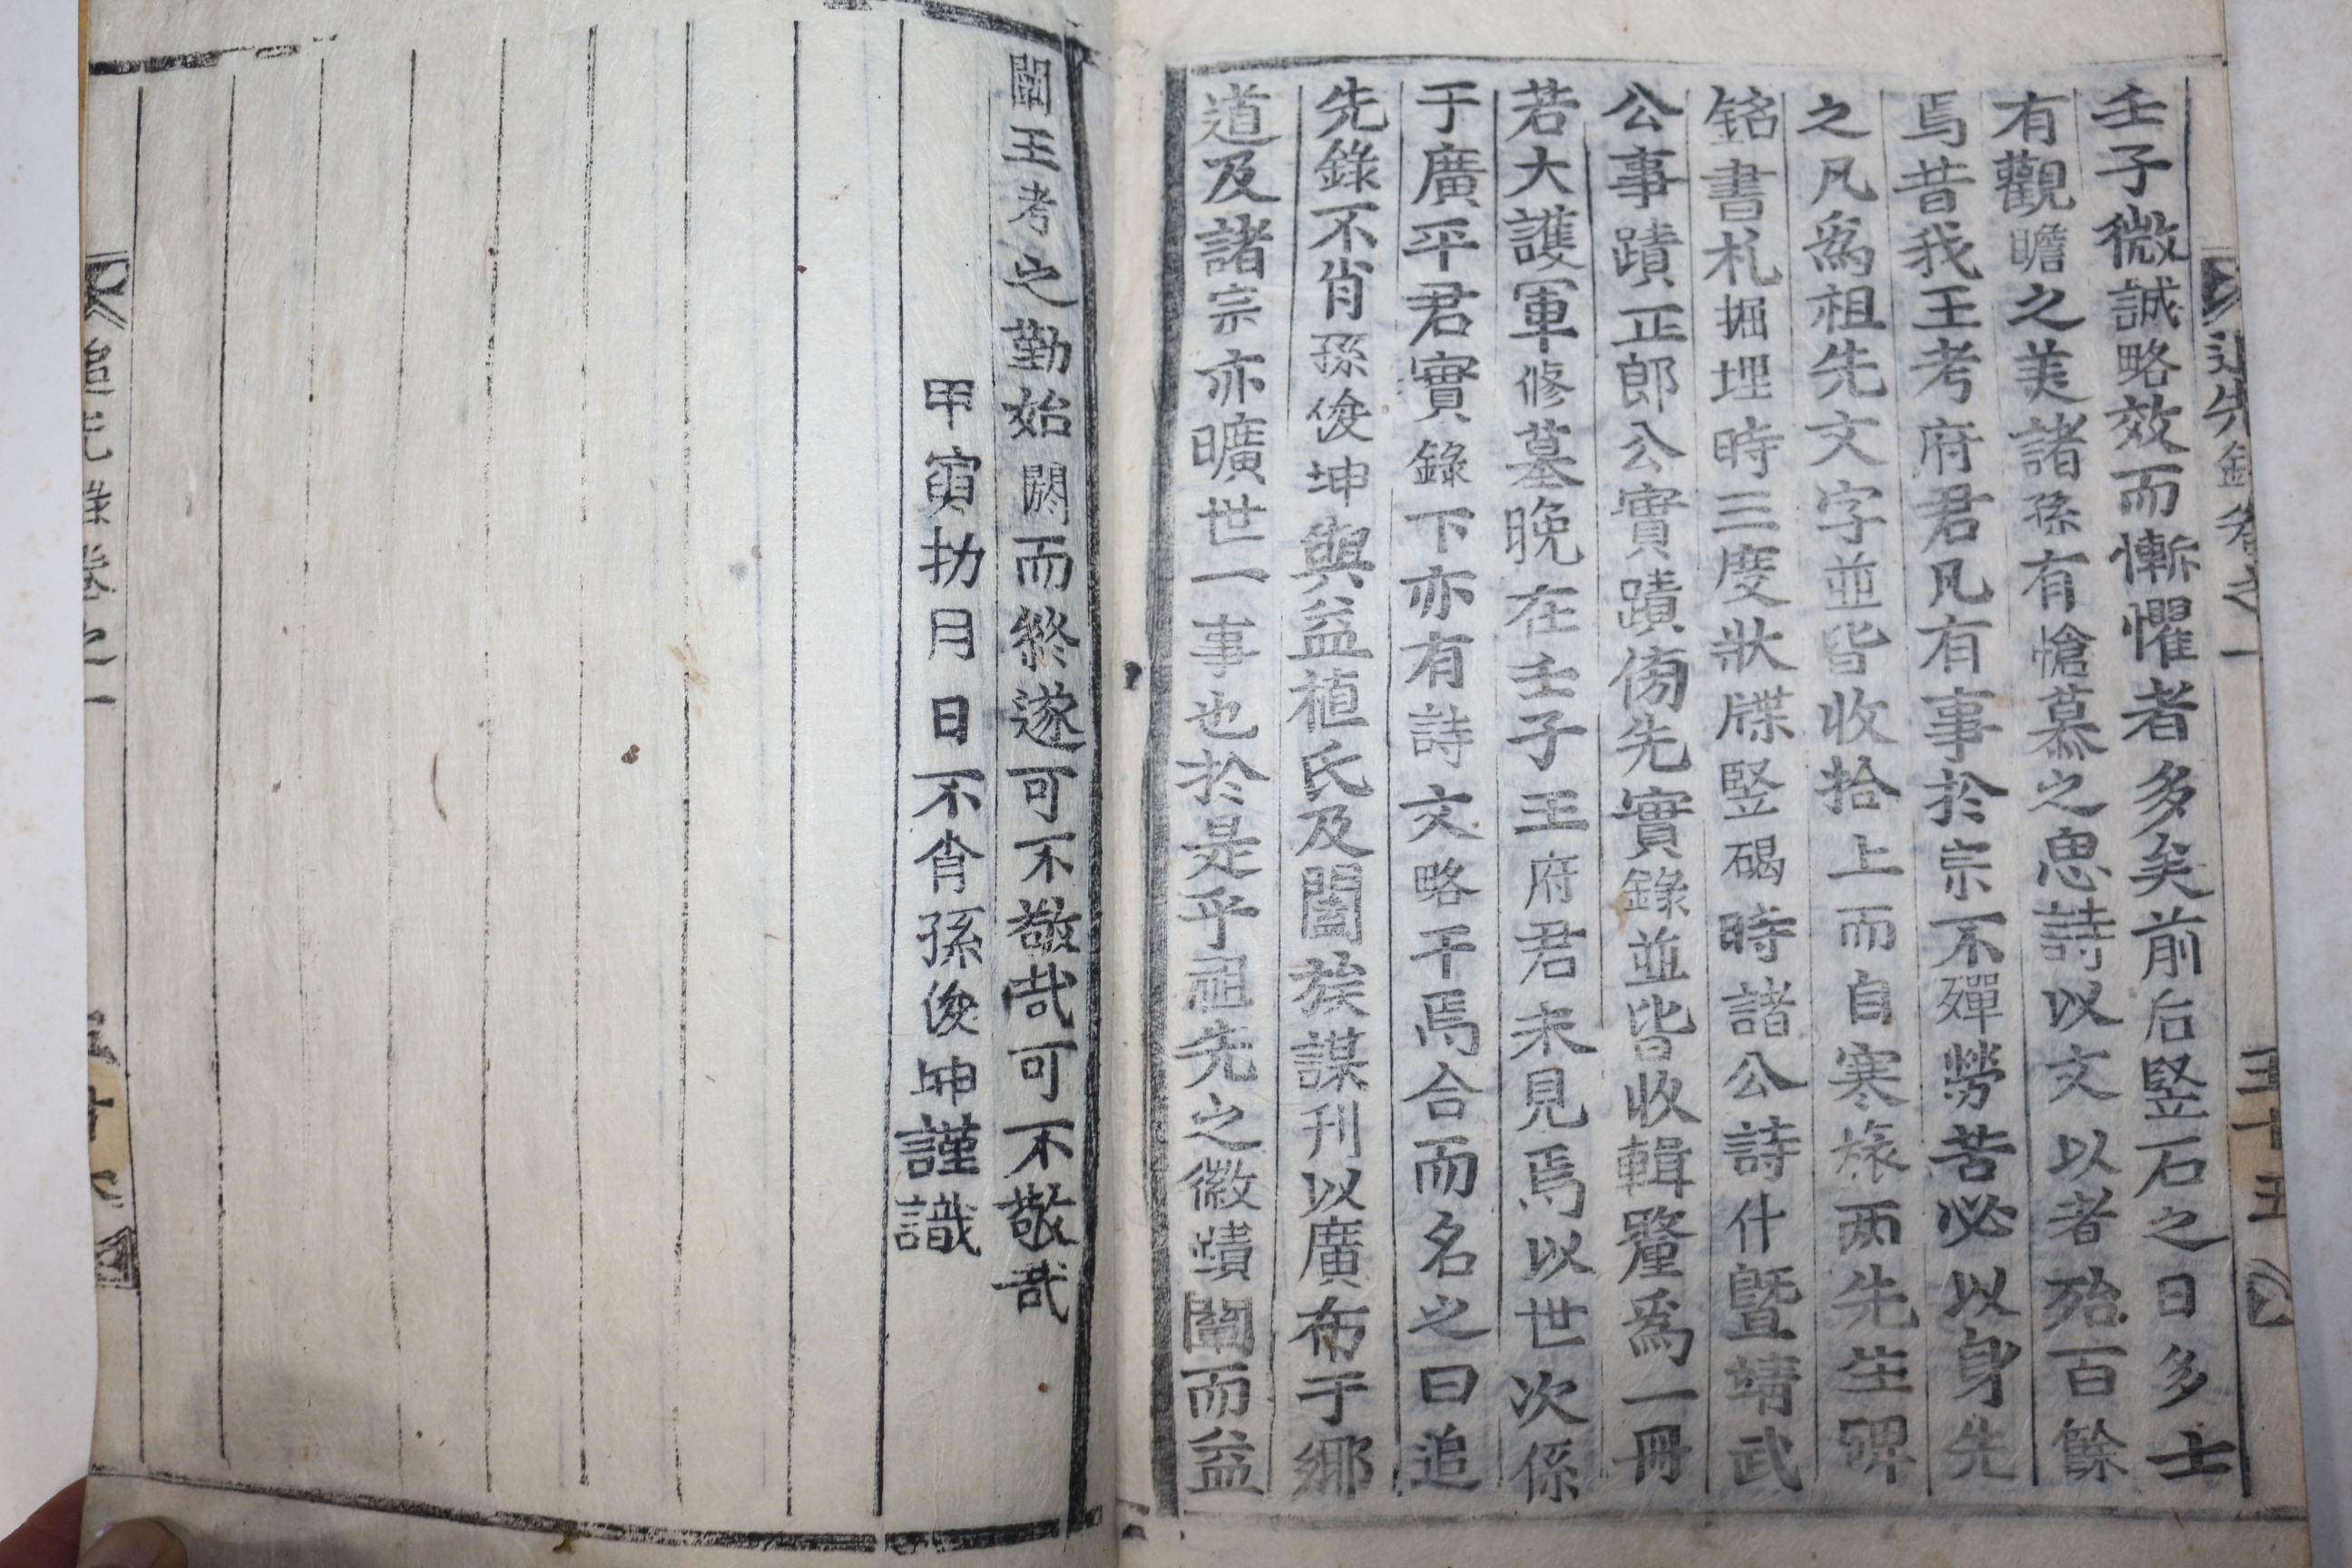 壬子微誠略效而慚懼者多矣前后竪石之日多士
有觀瞻之美諸孫有愴慕之思詩以文以者殆百餘
焉昔我王考府君凡有事於宗不殫勞苦必以身先
之凡爲祖先文字並皆收拾上而自寒旅两先生碑
銘書札掘埋時三度狀牒竪碣時諸公詩什曁靖武
公事蹟正郎公實蹟傍先實錄並皆收輯釐爲一冊
若大護軍修墓晚在壬子王府君未見焉以世次係
于廣平君實錄下亦有詩文略干焉合而名之曰追
先錄不肖孫俊坤與益植氏及闔族謀刊以廣布于鄉
道及諸宗亦曠世一事也於是乎祖先之徽蹟闡而益
闡王考之勤始閼而終遂可不敬哉可不敬哉
甲寅 月日不肖孫俊坤謹識
追先錄卷之一
五十五
追先錄卷之一